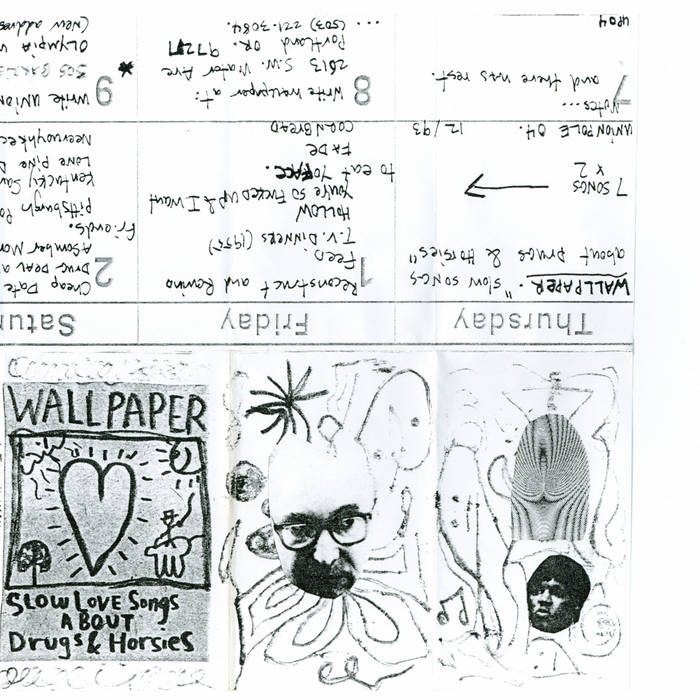 Thursday
Friday
Satur
WALLPAPER. "slow songs
about DRUGS & HORSIES"
7 SONGS
x 2
UNIONPOLE 04. 12/93
1
Reconstruct and Rewind
Feed
T.V. DINNERS (1955)
HOLLOW
You're SO FUCKED UP & I want
to eat FACE.
FADE
CORNBREAD
2
Cheap Date
DRUG DEAL a
A Somber Mor
Friends.
Pittsburgh Po
Kentucky San
LONE PINE D
7
Notes...
and there was rest.
UP04
8
Write wallpaper at:
2613 S.W. Water Ave
Portland OR.
(503) 221-3084.
...
9
Write UNION
505
OLYMPIA W
(New address
WALLPAPER
SLOW LOVE Songs
ABOUT
Drugs & Horsies